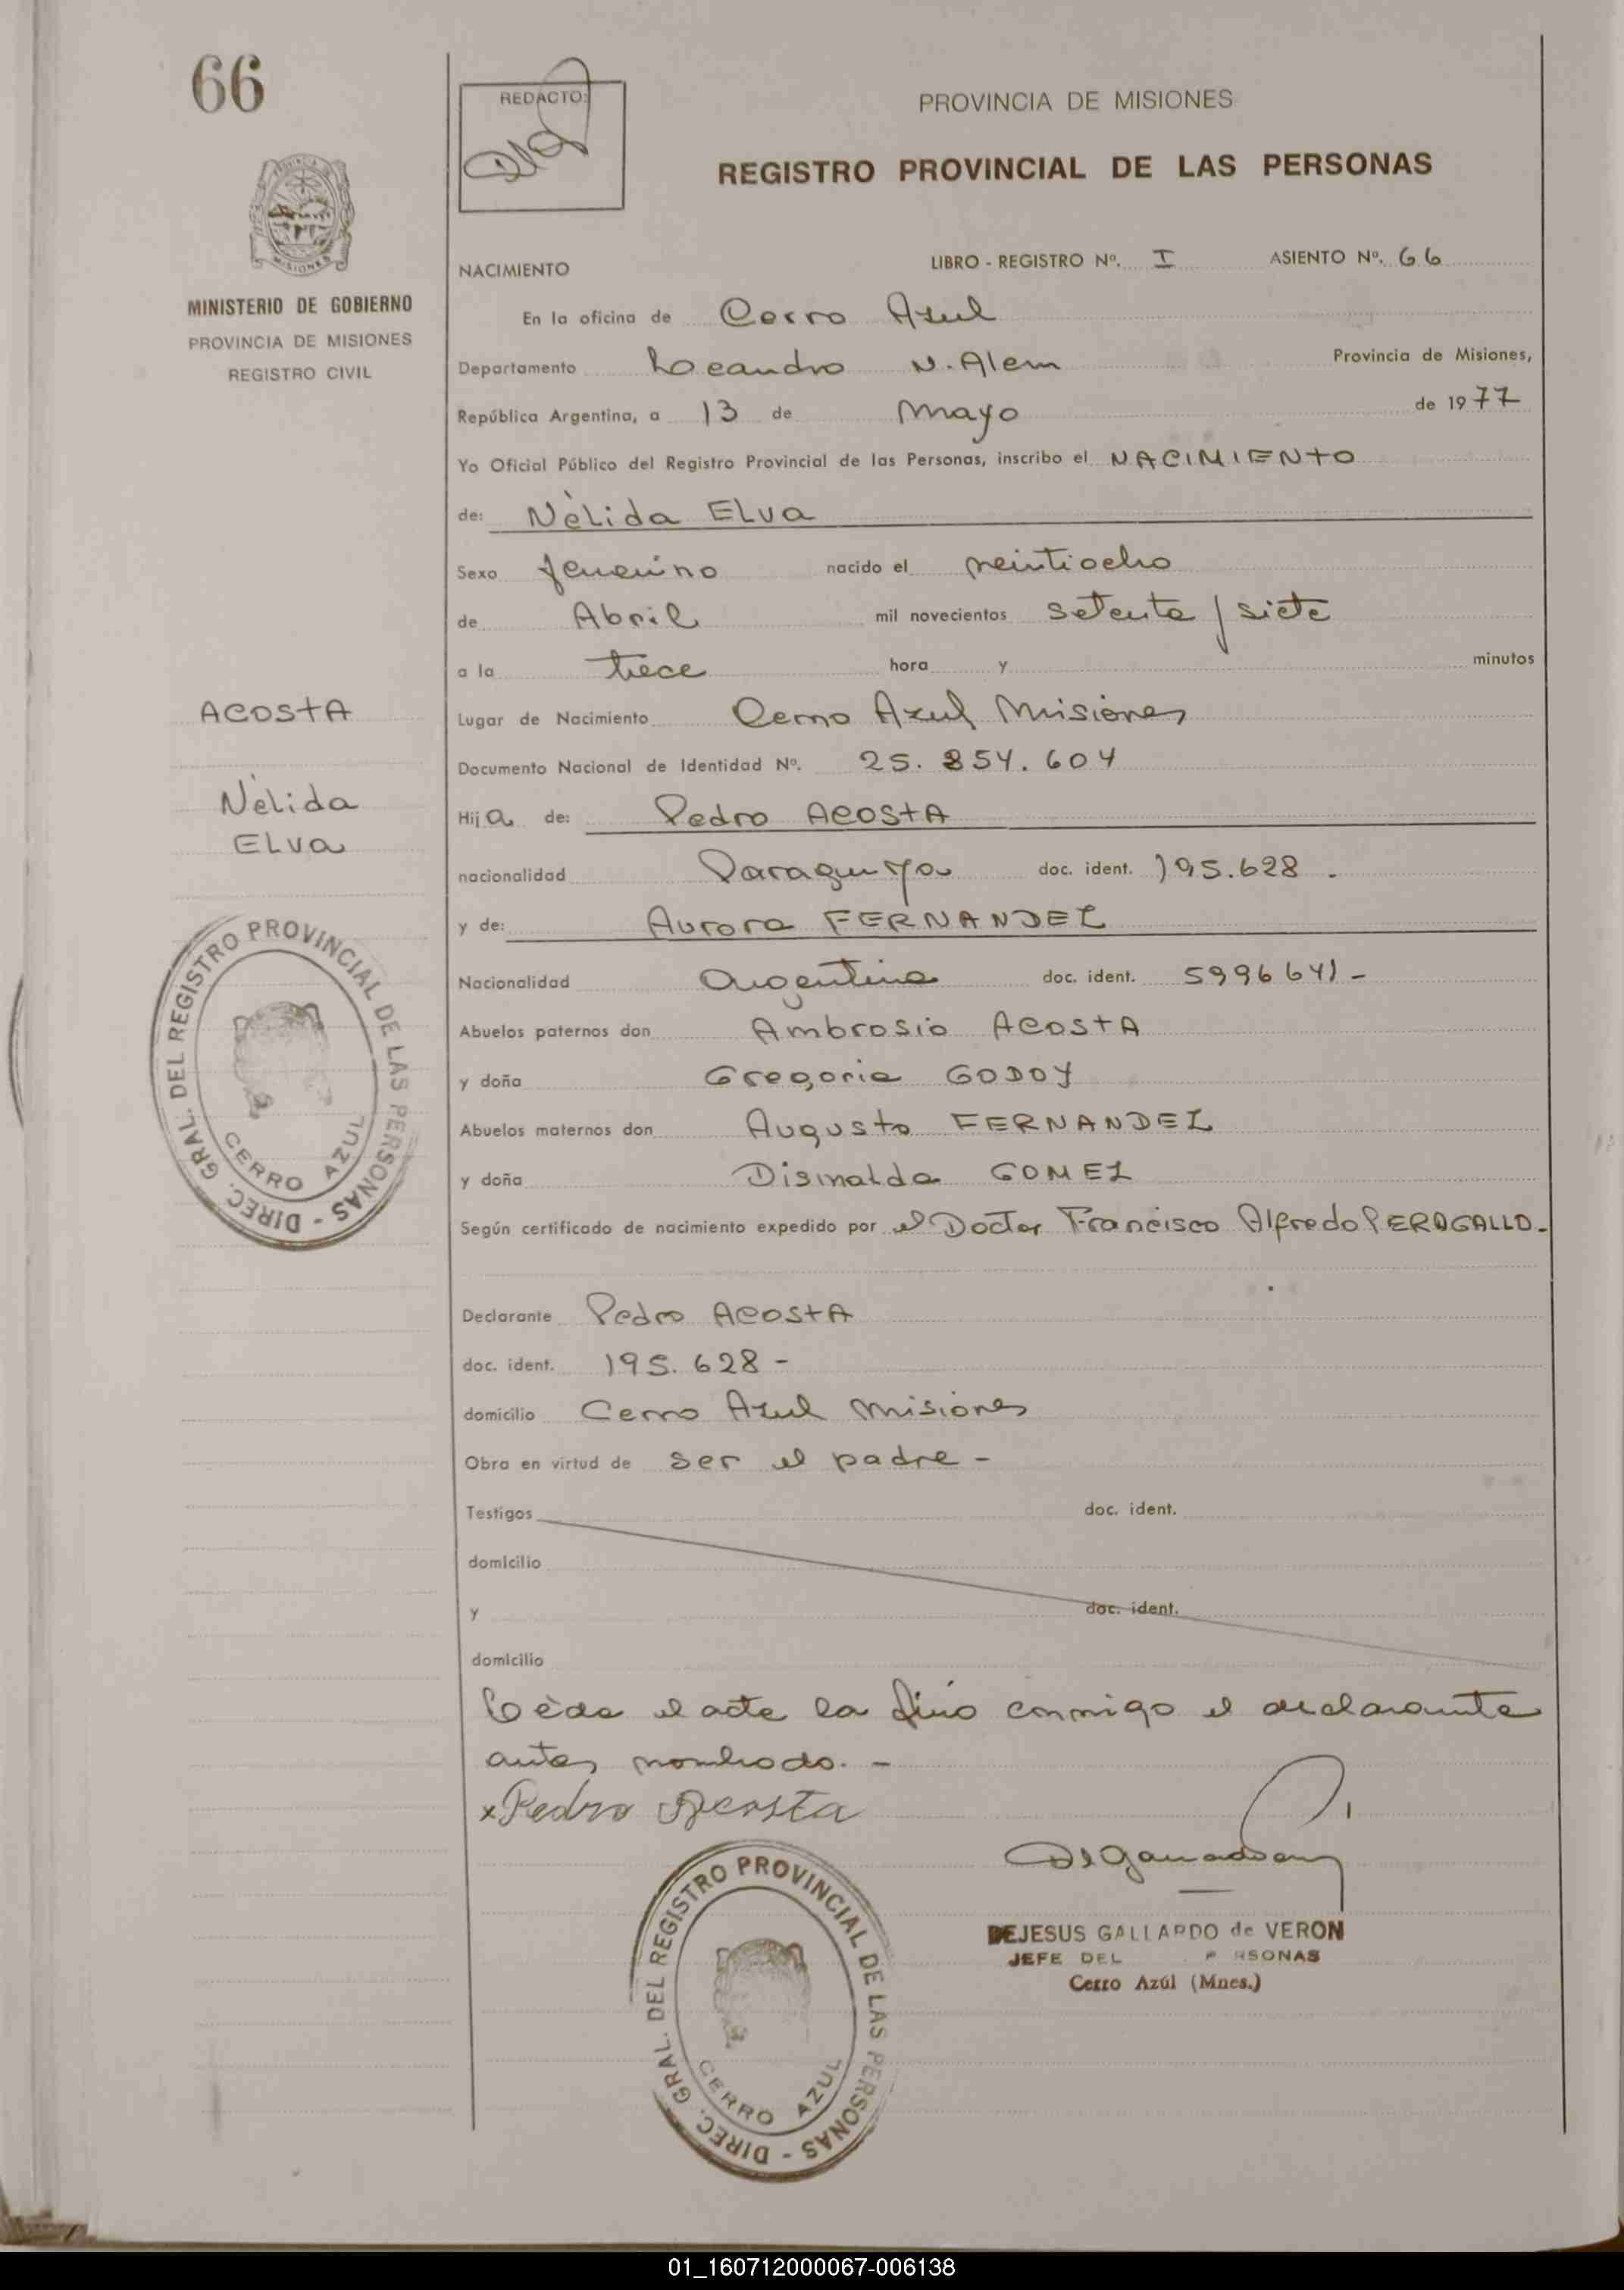 66
REDACTO:
PROVINCIA DE MISIONES
REGISTRO PROVINCIAL DE LAS PERSONAS
MISIONES
MINISTERIO DE GOBIERNO
PROVINCIA DE MISIONES
REGISTRO CIVIL
NACIMIENTO LIBRO - REGISTRO Nº. I ASIENTO Nº. 66
En la oficina de Cerro Azul
Departamento Leandro N. Alem Provincia de Misiones,
República Argentina, a 13 de Mayo de 1977
Yo Oficial Público del Registro Provincial de las Personas, inscribo el NACIMIENTO
de: Nèlida ELva
Sexo femenino nacido el veintiocho
de Abril mil novecientos setenta y siete
a la trece hora y minutos
Lugar de Nacimiento Cerro Azul Misiones
Documento Nacional de Identidad Nº. 25.854.604
Hija de: Pedro ACOSTA
nacionalidad Paraguaya doc. ident. 195.628.
y de: Aurora FERNANDEZ
Nacionalidad Argentina doc. ident. 5996641-
Abuelos paternos don Ambrosio ACOSTA
y doña Gregoria GODOY
Abuelos maternos don Augusto FERNANDEZ
y doña Disinalda GOMEZ
Según certificado de nacimiento expedido por el Doctor Francisco Alfredo PERAGALLO.-
Declarante Pedro ACOSTA
doc. ident. 195.628-
domicilio Cerro Azul Misiones
Obra en virtud de ser el padre-
Testigos doc. ident.
domicilio
y doc. ident.
domicilio
Lèda el acta la firmó conmigo el declarante
antes nombrado.-
x Pedro Acosta
DEJESUS GALLARDO de VERON
JEFE DEL
Cerro Azúl (Mnes.)
ACOSTA
Nèlida
ELva
DIREC. GRAL. DEL REGISTRO PROVINCIAL DE LAS PERSONAS -
CERRO AZUL
DIREC. GRAL. DEL REGISTRO PROVINCIAL DE LAS PERSONAS -
CERRO AZUL
01_160712000067-006138